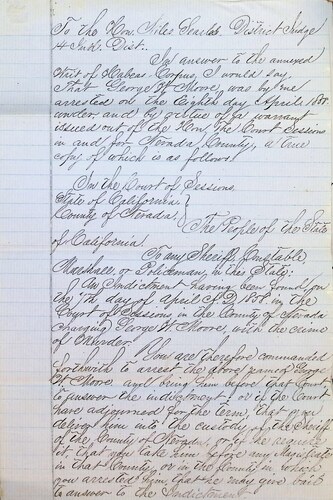 To the Hon. Niles Searls. District Judge
14 Judl. Dist.:
In answer to the annexed
Writ of Habeas-Corpus, I would say,
That George W Moore, was by me
arrested on the Eighth day April
under, and by virtue of a warrant
issued out of the Hon. The Court Sessions
in and for Nevada, County, a true
copy of which is as follows:
In the Court of Sessions.
State of California.
County of Nevada.
The People of the State
of California.
To any Sheriff Constable,
Marshall, or Policeman, in this State:
An Indictment having been found, on
the 7th day of April A D 1858 in the
Court of Sessions in the County of Nevada
charging George W Moore, with the crime
of Murder.
You are therefore commanded
forthwith to arrest the above named George
W Moore and bring him before that Court,
to answer the indictment; or if the Court
have adjourned for the term, that you
deliver him into the custody of the Sheriff
of the County of Nevada, or if he require
it, that you take him before any Magistrate
in that County, or in the County in which
you arrested him, that he may give bail
to answer to the Indictment